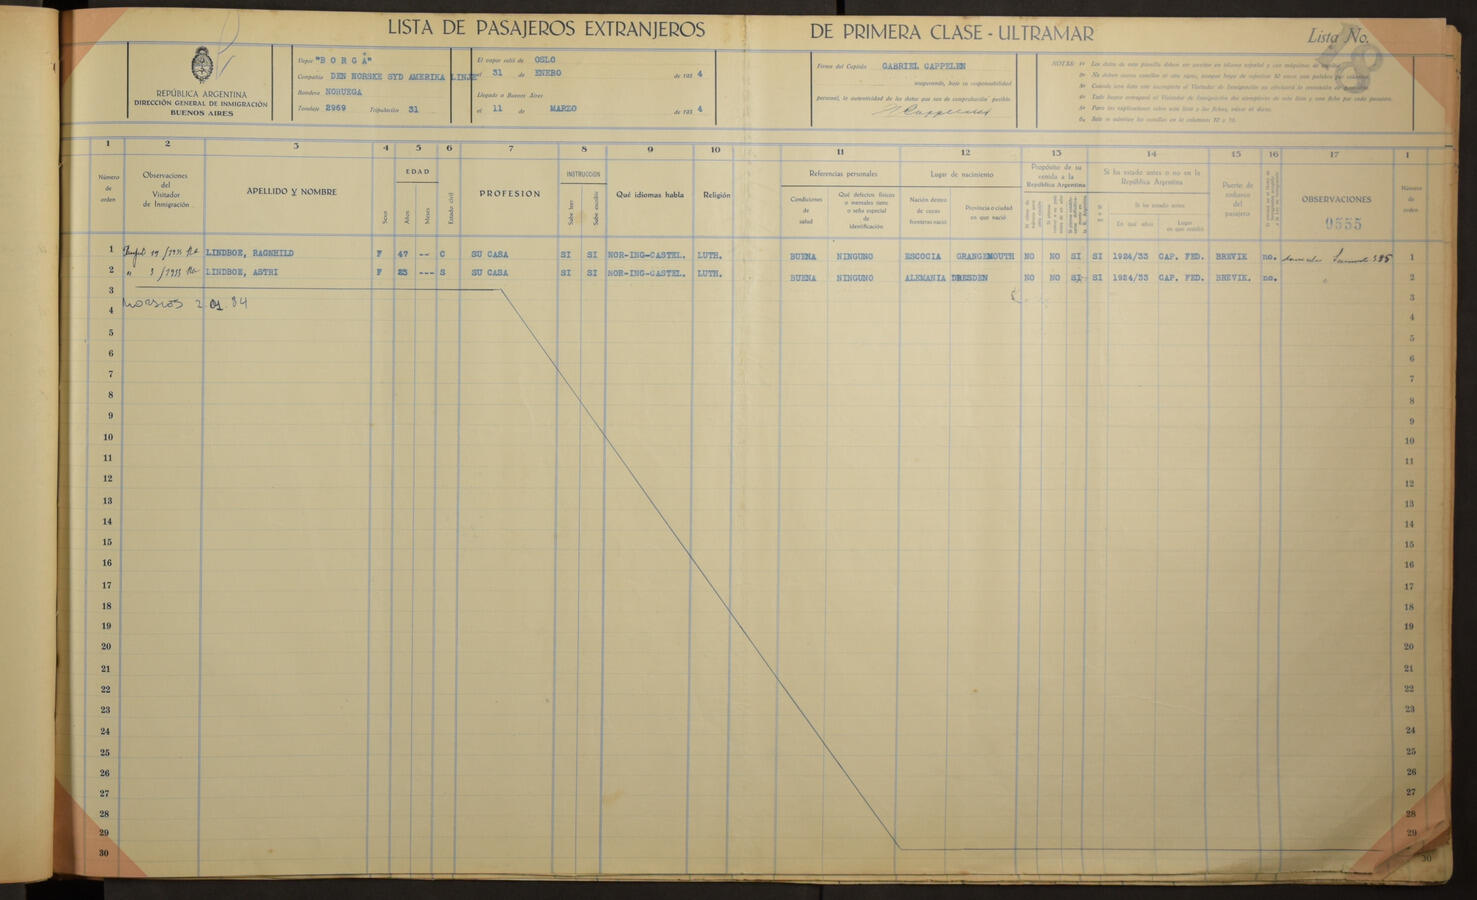 LISTA DE PASAJEROS EXTRANJEROS DE PRIMERA CLASE - ULTRAMAR Lista No.
REPÚBLICA ARGENTINA
DIRECCIÓN GENERAL DE INMIGRACIÓN
BUENOS AIRES
Vapor "BORGÅ"
Compañía DEN NORSKE SYD AMERIKA LINJE
Bandera NORUEGA
Tonelaje 2969 Tripulación 31
El vapor salió de OSLO
el 31 de ENERO de 193 4
Llegado a Buenos Aires
el 11 de MARZO de 193 4
Firma del Capitán GABRIEL CAPPELEN
asegurando, bajo su responsabilidad
personal, la autenticidad de los datos que sea de comprobación posible.
NOTAS:
1 2 3 4 5 6 7 8 9 10 11 12 13 14 15 16 17 1
Número de orden
Observaciones del Visitador de Inmigración
APELLIDO Y NOMBRE
Sexo
EDAD
Años
Meses
Estado civil
PROFESION
INSTRUCCION
Sabe leer
Sabe escribir
Qué idiomas habla
Religión
Referencias personales
Condiciones de salud
Qué defectos físicos o mentales tiene o seña especial de identificación
Lugar de nacimiento
Nación dentro de cuyas fronteras nació
Provincia o ciudad en que nació
Propósito de su venida a la República Argentina
Si ha estado antes o no en la República Argentina
Si ha estado antes
En qué años
Lugar en que residió
Puerto de embarco del pasajero
OBSERVACIONES
9555
Número de orden
1 LINDBOE, RAGNHILD F 47 -- C SU CASA SI SI NOR-ING-CASTEL. LUTH. BUENA NINGUNO ESCOCIA GRANGEMOUTH NO NO SI SI 1924/33 CAP. FED. BREVIK no. 1
2 LINDBOE, ASTRI F 23 --- S SU CASA SI SI NOR-ING-CASTEL. LUTH. BUENA NINGUNO ALEMANIA DRESDEN NO NO SI SI 1924/33 CAP. FED. BREVIK. no. 2
3 3
4 4
5 5
6 6
7 7
8 8
9 9
10 10
11 11
12 12
13 13
14 14
15 15
16 16
17 17
18 18
19 19
20 20
21 21
22 22
23 23
24 24
25 25
26 26
27 27
28 28
29 29
30 30